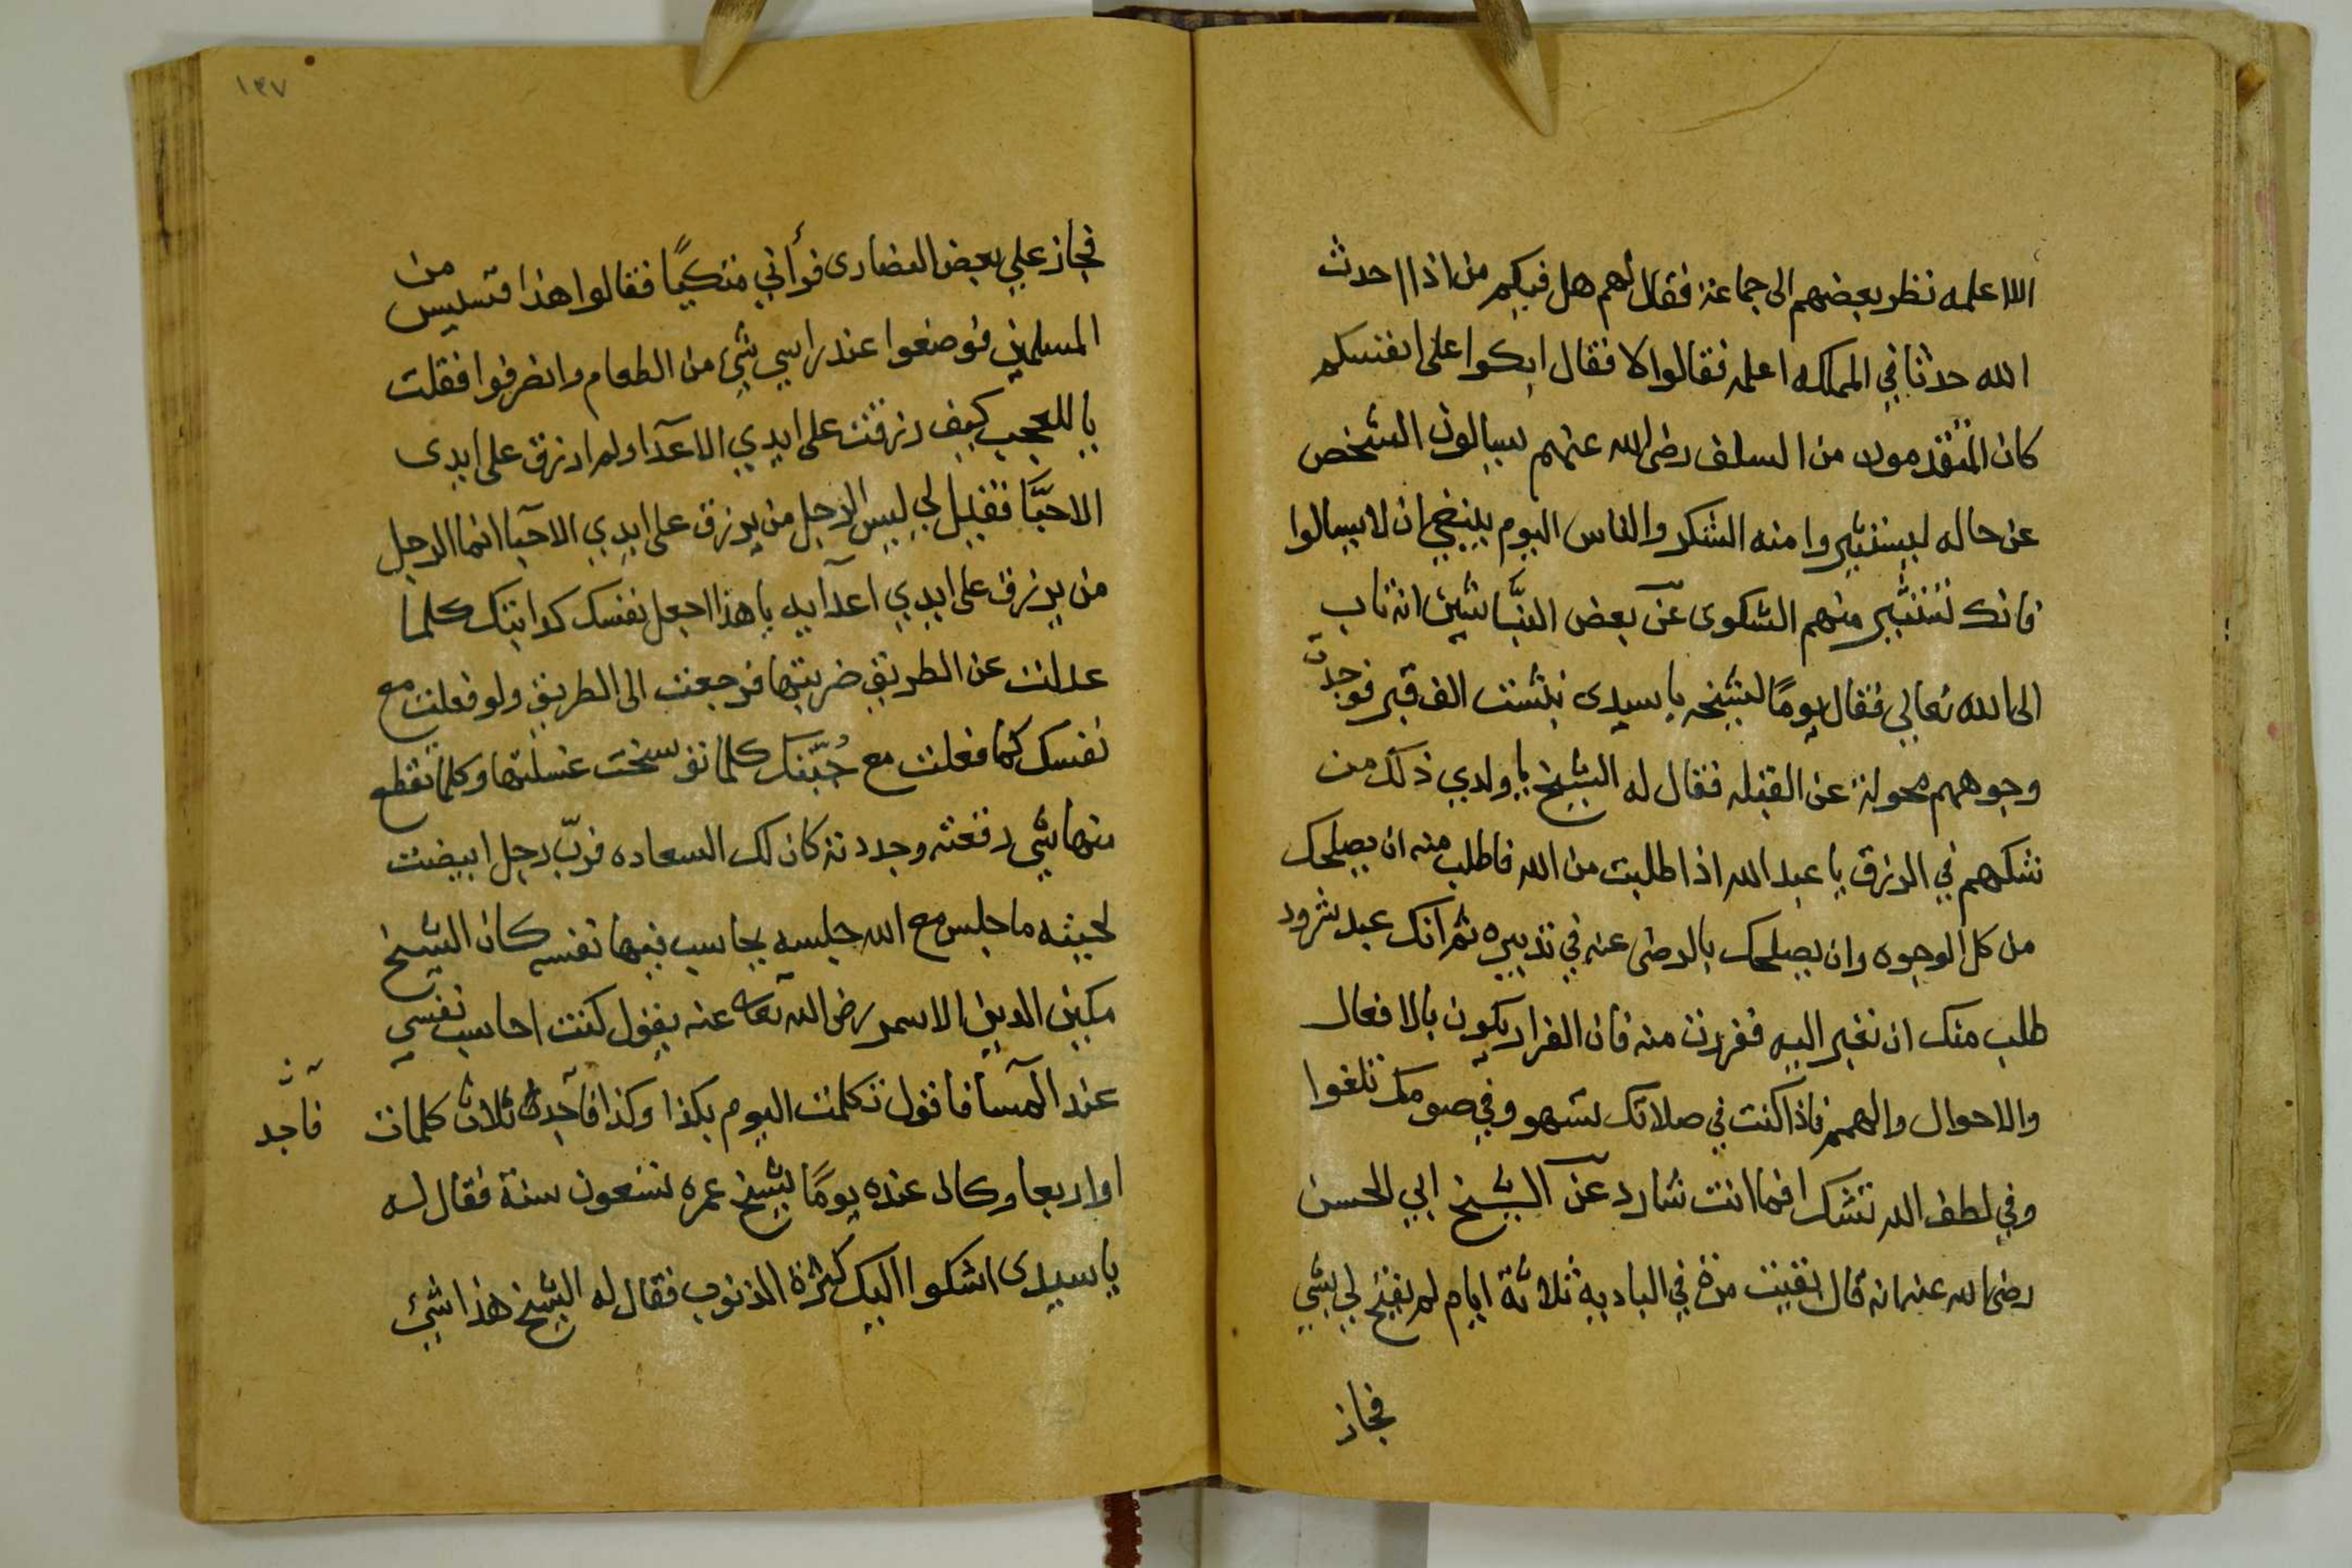 الا اعلمه نظر بعضهم الى جماعة فقال لهم هل فيكم من اذا احدث
الله حدثا في المملكه اعلمه فقالوا لا فقال ابكوا على انفسكم
كان المتقدمون من السلف رضى الله عنهم يسالون الشخص
عن حاله ليستثيروا منه الشكر والناس اليوم ينبغي ان لا يسالوا
فانك تستثير منهم الشكوى عن بعض النبّاشين انه تاب
الى الله تعالي فقال يومًا لشيخه يا سيدى نبشت الف قبر فوجدت
وجوههم محولة عن القبله فقال له الشيخ يا ولدي ذلك من
شكهم في الرزق يا عبد الله اذا طلبت من الله فاطلب منه ان يصلحك
من كل الوجوه وان يصلحك بالرضى عنه في تدبيره ثم انك عبد شرود
طلب منك ان تغير اليه ففررت منه فان الفرار يكون بالافعال
والاحوال والهمم فاذا كنت في صلاتك تسهو وفي صومك تلغوا
وفي لطف الله تتشكا فما انت شارد عن الشيخ ابي الحسن
رضى الله عنه انه قال بقيت مرة في الباديه ثلاثة ايام لم يفتح لي بشي
فجاز
١٣٧
فجاز علي بعض النصارى فرأني متكيًا فقالوا هذا قسيس من
المسلمين فوضعوا عند راسي شئ من الطعام وانصرفوا فقلت
يا للعجب كيف رزقت على ايدي الاعدآ ولم ارزق على ايدى
الاحبّا فقيل لي ليس الرجل من يرزق على ايدي الاحبآ انما الرجل
من يرزق على ايدي اعدآيه يا هذا اجعل نفسك كدابتك كلما
عدلت عن الطريق ضربتها فرجعت الى الطريق ولو فعلت مع
نفسك كما فعلت مع جُبّتك كلما توسخت غسلتها وكلما تقطع
منها شي رقعته وجددته كان لك السعاده فربّ رجل ابيضت
لحيته ما جلس مع الله جلسه يحاسب فيها نفسه كان الشيخ
مكين الدين الاسمر رضى الله تعا عنه يقول كنت احاسب نفسي
عند المسآ فاقول تكلمت اليوم بكذا وكذا فاجد ثلاث كلمات
فاجد
او اربعا وكان عنده يومًا شيخ عمره تسعون سنة فقال له
يا سيدى اشكوا اليك كثرة الذنوب فقال له الشيخ هذا شئ